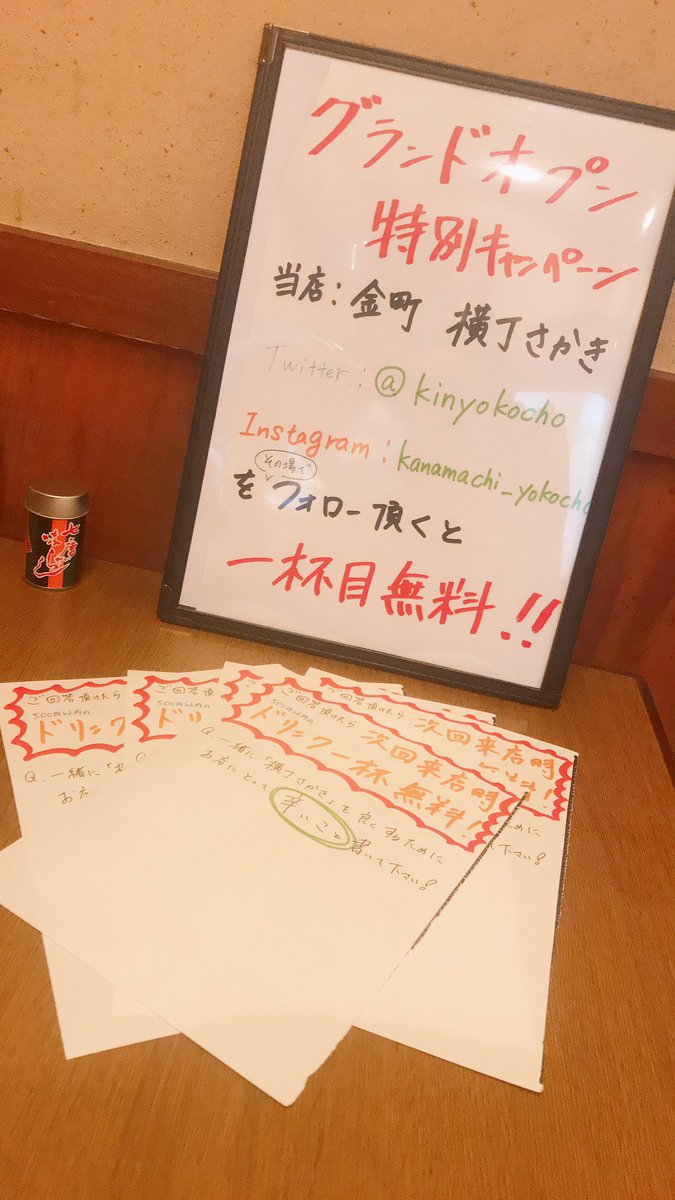 グランドオープン
特別キャンペーン
当店：金町 横丁さかき
Twitter：@kinyokocho
Instagram：kanamachi_yokocho
その場で
をフォロー頂くと
一杯目無料！！
ご回答頂けたら
500円以内の
ドリンク
Q.一緒に
お
ご回答頂
500円以内の
ドリ
ご回答頂けたら 次回来店時
500円以内の
ドリンク一杯無料！！
Q.一緒に「横丁さかき」を良くするために
お店にとって辛いこと書いて下さい！
ご回答頂けたら 次回来店時
無料！！
ために
て下さい！